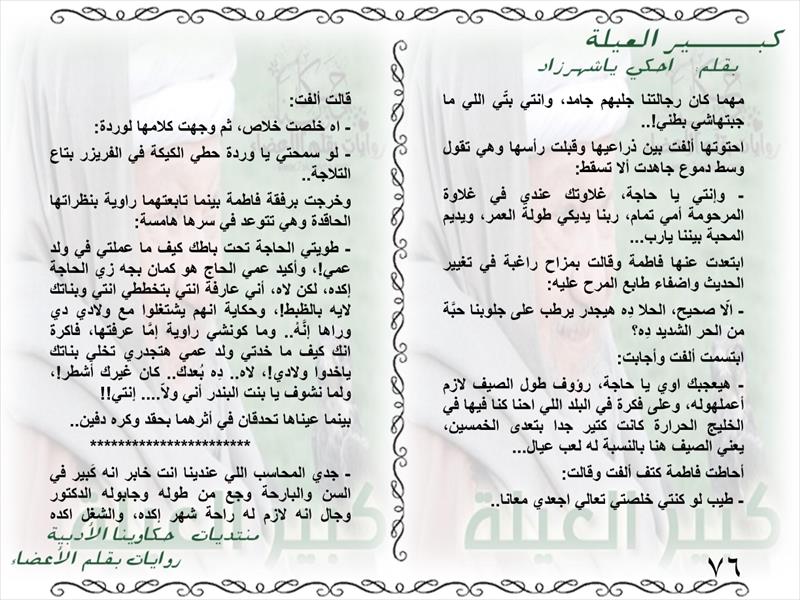 كبـــــــير العيلة
بقلم احكي ياشهرزاد
مهما كان رجالتنا جلبهم جامد، وانتي بتّي اللي ما
جبتهاشي بطني!..
احتوتها ألفت بين ذراعيها وقبلت رأسها وهي تقول
وسط دموع جاهدت ألا تسقط:
- وإنتي يا حاجة، غلاوتك عندي في غلاوة
المرحومة أمي تمام، ربنا يديكي طولة العمر، ويديم
المحبة بيننا يارب...
ابتعدت عنها فاطمة وقالت بمزاح راغبة في تغيير
الحديث واضفاء طابع المرح عليه:
- ألّا صحيح، الحلا دِه هيجدر يرطب على جلوبنا حبَّة
من الحر الشديد دِه؟
ابتسمت ألفت وأجابت:
- هيعجبك اوي يا حاجة، رؤوف طول الصيف لازم
أعملهوله، وعلى فكرة في البلد اللي احنا كنا فيها في
الخليج الحرارة كانت كتير جدا بتعدى الخمسين،
يعني الصيف هنا بالنسبة له لعب عيال...
أحاطت فاطمة كتف ألفت وقالت:
- طيب لو كنتي خلصتي تعالي اجعدي معانا..
قالت ألفت:
- اه خلصت خلاص، ثم وجهت كلامها لوردة:
- لو سمحتي يا وردة حطي الكيكة في الفريزر بتاع
التلاجة..
وخرجت برفقة فاطمة بينما تابعتهما راوية بنظراتها
الحاقدة وهي تتوعد في سرها هامسة:
- طويتي الحاجة تحت باطك كيف ما عملتي في ولد
عمي!، وأكيد عمي الحاج هو كمان بجه زي الحاجة
إكده، لكن لاه، أني عارفة انتي بتخططي انتي وبناتك
لايه بالظبط!، وحكاية انهم يشتغلوا مع ولادي دي
وراها إنَّة.. وما كونشي راوية إمَّا عرفتها، فاكرة
انك كيف ما خدتي ولد عمي هتجدري تخلي بناتك
ياخدوا ولادي!، لاه.. دِه بُعدك.. كان غيرك أشطر!،
ولما نشوف يا بنت البندر أني ولاّ.... إنتي!!
بينما عيناها تحدقان في أثرهما بحقد وكره دفين..
***********************
- جدي المحاسب اللي عندينا انت خابر انه كَبير في
السن والبارحة وجع من طوله وجابوله الدكتور
وجال انه لازم له راحة شهر إكده، والشغل اكده
منتديات حكاوينا الأدبية
روايات بقلم الأعضاء
كبير العيلة
كبير العيلة
٧٦